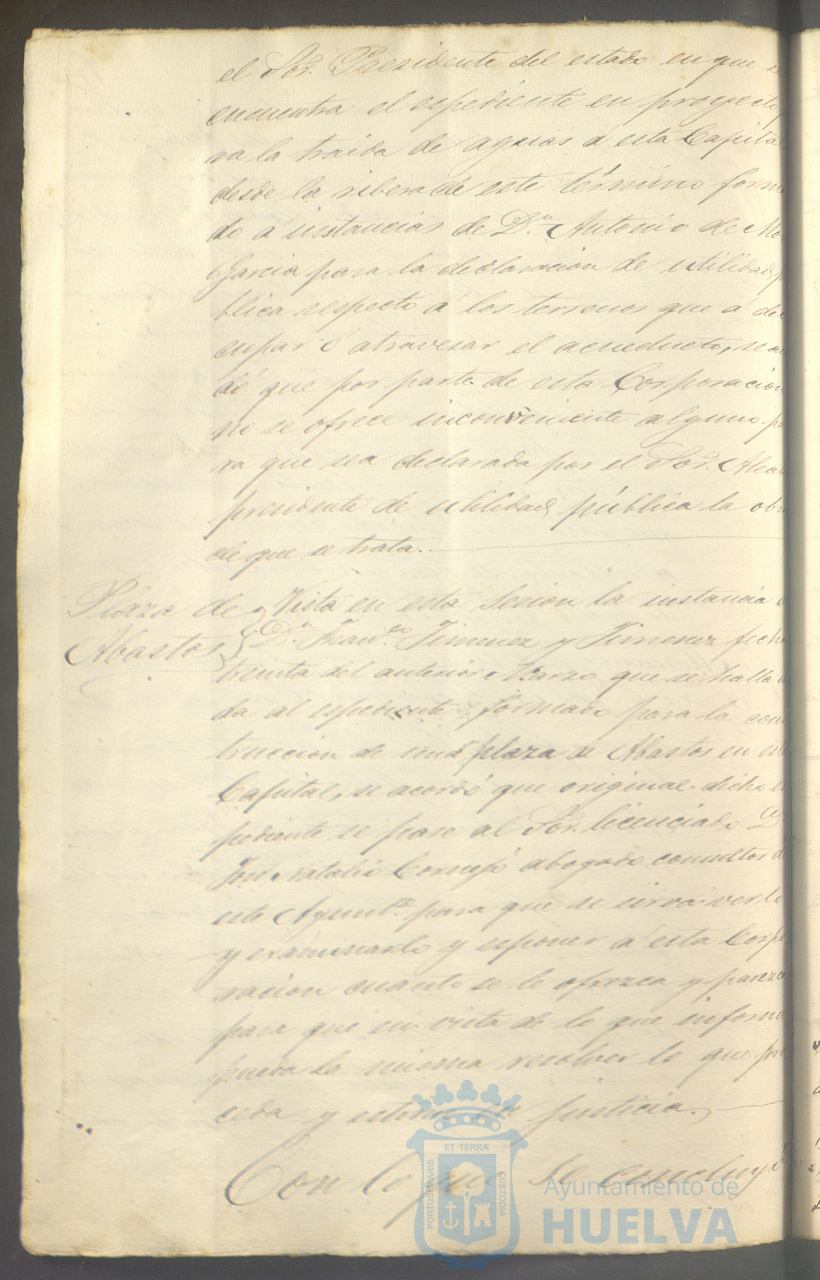 el Sor. Presidente del estado en que se
encuentra el espediente en proyecto p
ra la traida de aguas a esta Capital
desde la ribera de este término forma
do a instancias de Dn. Antonio de Mo
Garcia para la declaracion de utilidad p
blica respecto a los terrenos que a de
cupar ó atravesar el acueducto, se a
dó que por parte de esta Corporacion
no se ofrece inconveniente alguno p
ra que sea declarada por el Sor. Alcal
presidente de utilidad pública la obr
de que se trata.
Plaza de
Abastos
Vista en esta Sesion la instancia
Dn. Franco. Jimenez y Jimenez fecha
treinta del anterior Marzo, que se halla u
da al espediente formado para la cons
truccion de una plaza de Abastos en est
Capital, se acordó que original dicho es
pediente se pase al Sor. licenciado D
José Natalio Cornejo abogado consultor d
este Ayuntº. para que se sirva verlo
y examinarlo y esponer a esta Corpo
racion cuanto se le ofrezca y parezca
para que en vista de lo que informe
pueda la misma resolver lo que pro
ceda y estime en justicia.
Con lo que se concluyó
ET TERRÆ
PORTUS MARIS
CUSTODIA
Ayuntamiento de
HUELVA